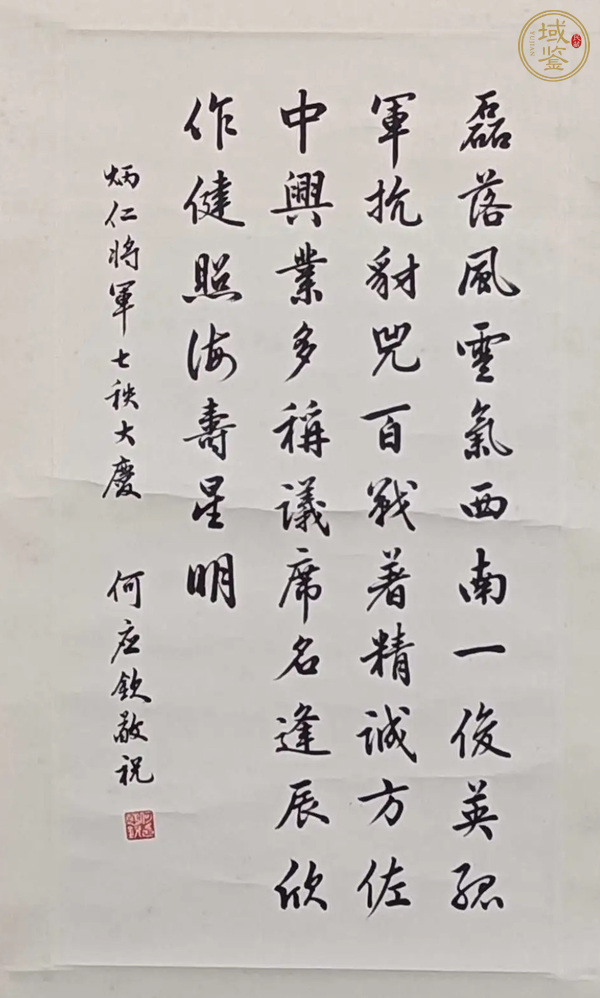 磊落風雲氣西南一俊英孤
軍抗豺兕百戰著精誠方佐
中興業多稱議席名逢辰欣
作健照海壽星明
炳仁將軍七秩大慶 何应欽敬祝
域鉴
YUJIAN